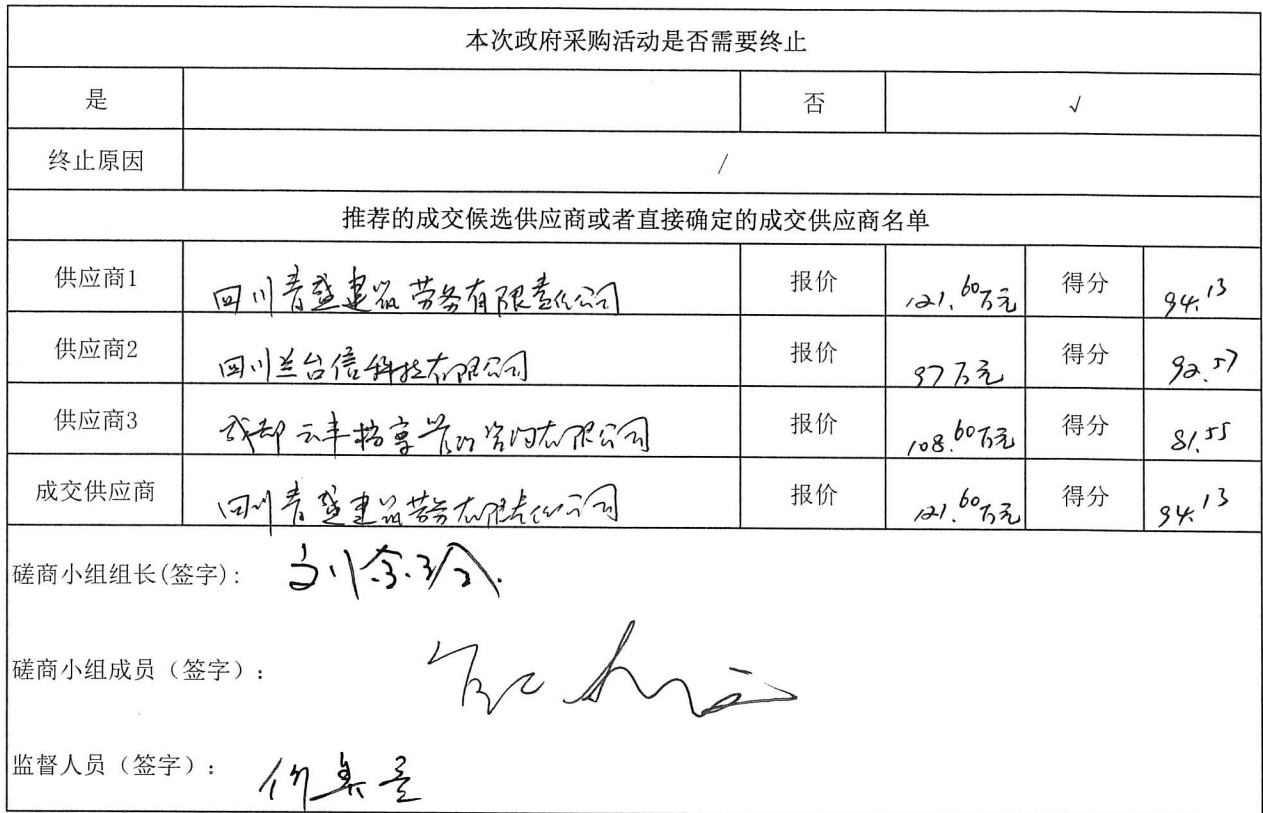 本次政府采购活动是否需要终止
是 否 √
终止原因 /
推荐的成交候选供应商或者直接确定的成交供应商名单
供应商1 四川青盛建筑劳务有限责任公司 报价 121.60万元 得分 94.13
供应商2 四川兰台信科技有限公司 报价 97万元 得分 92.57
供应商3 成都云丰档案 咨询有限公司 报价 108.60万元 得分 81.55
成交供应商 四川青盛建筑劳务有限责任公司 报价 121.60万元 得分 94.13
磋商小组组长(签字):
磋商小组成员（签字）:
监督人员（签字）: